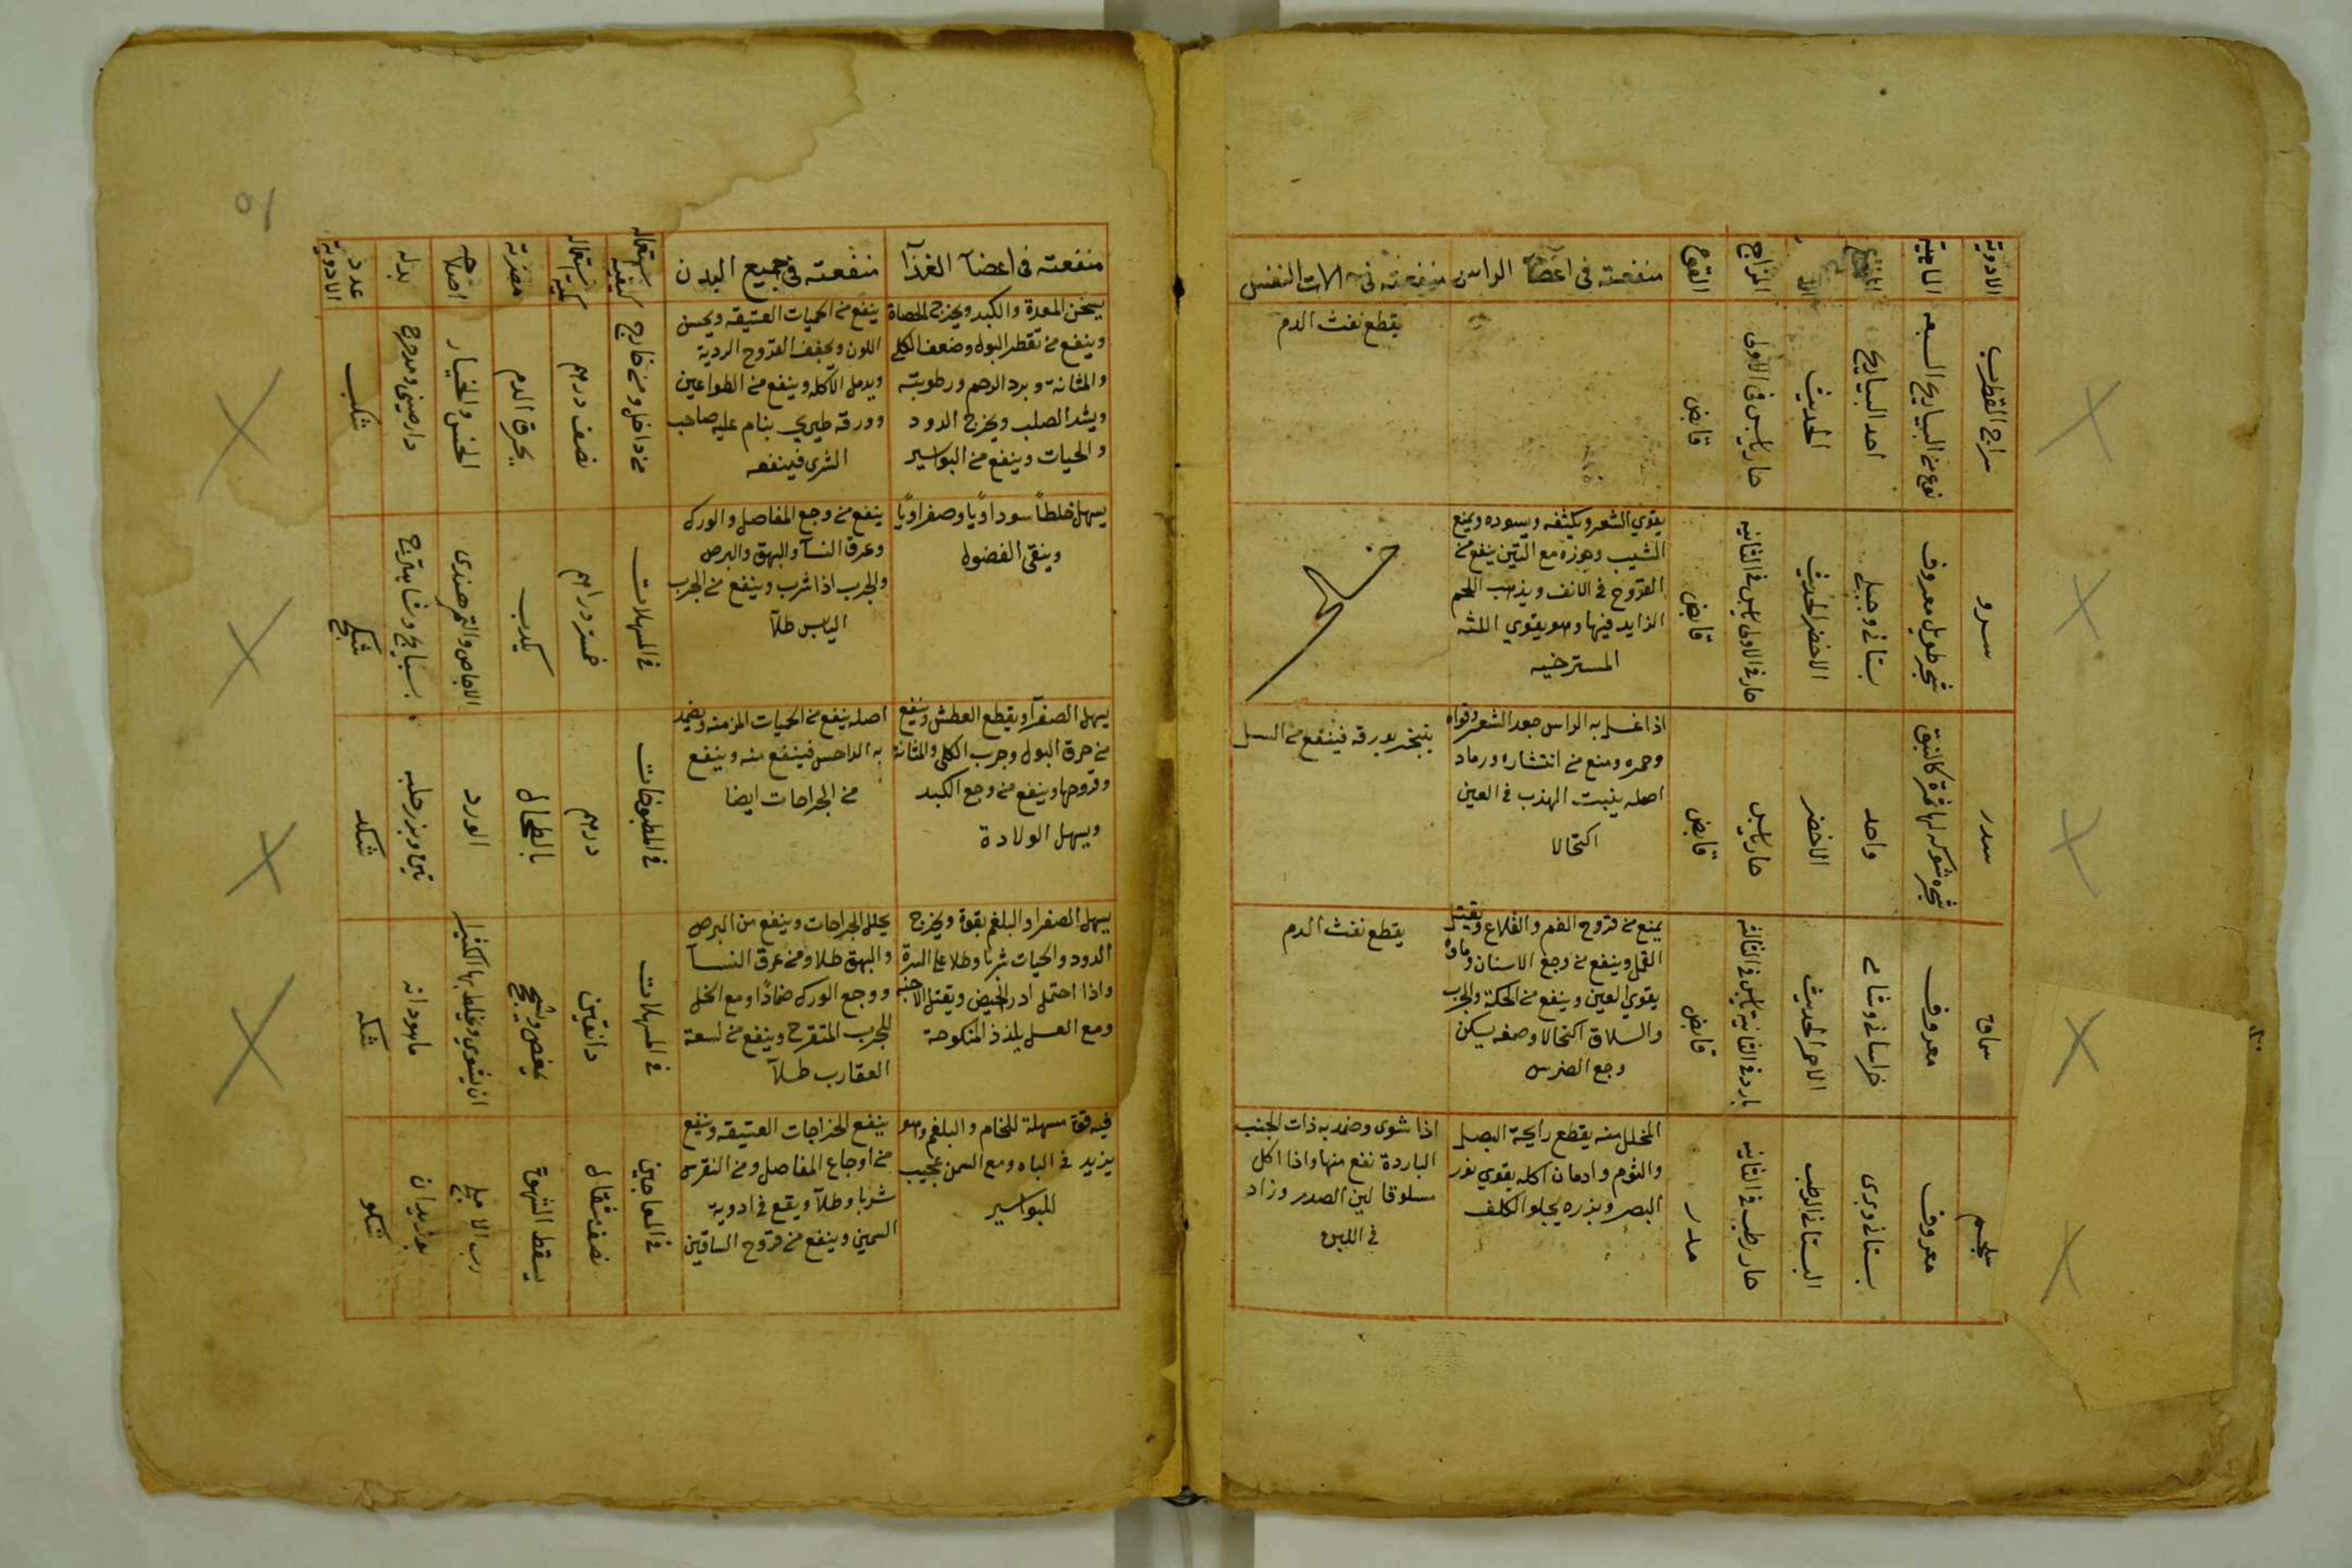 الادوية
الماهية
المزاج
القوة
منفعته فى اعضآ الراس
منفعته فى الات التنفس
سراج القطرب
نوع من اليبار يح السبعه
الحديث
حار يابس فى الاولى
قابض
يقطع نفث الدم
سرو
شجر طويل معروف
بستانى وجبلى
الاخضر الحديث
حار فى الاولى يابس فى الثانيه
قابض
يقوي الشعر ويكثفه ويسوده ويمنع
الشيب وجوزه مع التين ينفع من
القروح فى الانف ويذهب اللحم
الزايد فيها وهو يقوي اللثه
المسترخيه
سدر
شجره شوكه لها ثمرة كالنبق
واحد
الاخضر
حار يابس
قابض
اذا غسل به الراس جعد الشعر وقواه
وحمره ومنع من انتشاره ورماد
اصله ينبت الهدب فى العين
اكتحالا
يتبخر بورقه فينفع من السل
سماق
معروف
خراسانى وشامى
الاحمر الحديث
بارد فى الثانية يابس فى الثالثه
قابض
يمنع من قروح الفم والقلاع ويقتل
القمل وينفع من وجع الاسنان وماوه
يقوي العين وينفع من الحكة والجرب
والسلاق اكتحالا وصمغه يسكن
وجع الضرس
يقطع نفث الدم
سلجم
معروف
بستانى وبرى
البستانى الرطب
حار رطب فى الثانيه
مدر
المخلل منه يقطع رايحة البصل
والثوم وادمان اكله يقوي نور
البصر وبذره يجلو الكلف
اذا شوى وضمد به ذات الجنب
الباردة نفع منها واذا اكل
مسلوقا لين الصدر وزاد
فى اللبن
منفعته فى اعضآ الغذآ
منفعته فى جميع البدن
كيفية استعماله
كمية استعماله
مضرته
اصلاحه
بدله
عدد الادوية
يسخن المعدة والكبد ويخرج الحصاة
وينفع من تقطير البول وضعف الكلى
والمثانة وبرد الرحم ورطوبته
ويشد الصلب ويخرج الدود
والحيات وينفع من البواسير
ينفع من الحميات العتيقه ويحسن
اللون ويجفف القروح الردية
ويدمل الآكله وينفع من الطواعين
وورقه طيري ينام عليه صاحب
الشرى فينفعه
من داخل ومن خارج
نصف درهم
يحرق الدم
الخس والخيار
دارصينى ومدحرج
شكب
يسهل خلطاً سوداويًا وصفراويًا
وينقى الفضول
ينفع من وجع المفاصل والورك
وعرق النسآ والبهق والبرص
والجرب اذا شرب وينفع من الجرب
اليابس طلآ
فى المسهلات
خمسة دراهم
يكرب
الاجاص والتمر هندى
بسبايج وشاهترج
شكج
يسهل الصفرآ ويقطع العطش وينفع
من حرق البول وجرب الكلى والمثانة
وقروحها وينفع من وجع الكبد
ويسهل الولادة
اصله ينفع من الحميات المزمنه ويضمد
به الداحس فينفع منه وينفع
من الجراحات ايضا
فى المطبوخات
درهم
بالطحال
الورد
تين وبزر حلبه
شكد
يسهل الصفرا والبلغم بقوة ويخرج
الدود والحيات شربا وطلا على السرة
واذا احتمل ادر الحيض ويقتل الاجنه
ومع العسل يلذذ المنكوحة
يحلل الجراحات وينفع من البرص
والبهق طلا ومن عرق النسآ
ووجع الورك ضمادًا ومع الخل
للجرب المتقرح وينفع من لسعة
العقارب طلآ
فى المسهلات
دانقين
يمغص ويسحج
ان يشوى ويخلط بها الكثيرا
ماهودانه
شكه
فيه قوة مسهلة للخام والبلغم وهو
يزيد فى الباه ومع السمن عجيب
للبواسير
ينفع الخراجات العتيقه وينفع
من اوجاع المفاصل ومن النقرس
شربا وطلآ ويقع فى ادوية
السمين وينفع من قروح الساقين
فى المعاجين
نصف مثقال
يسقط الشهوة
بوزيدان
شكو